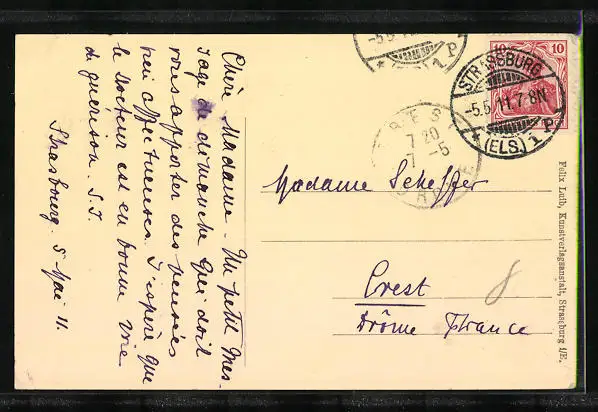 Chère Madame - Un petit mes-
sage de dimanche qui doit
vous apporter des pensées
bien affectueuses. J'espère que
le docteur est en bonne voie
de guérison. S.J.
Strasbourg. 5 Mai 11.
Madame Scheffer
Crest
Drôme France
8
10 10
STRASSBURG
-5.5.11.7-8N.
* (ELS.) 1 P
-5.5.11
* (ELS.) 1 P
7 20
7 -5
Felix Luib, Kunstverlagsanstalt, Strassburg i/E.